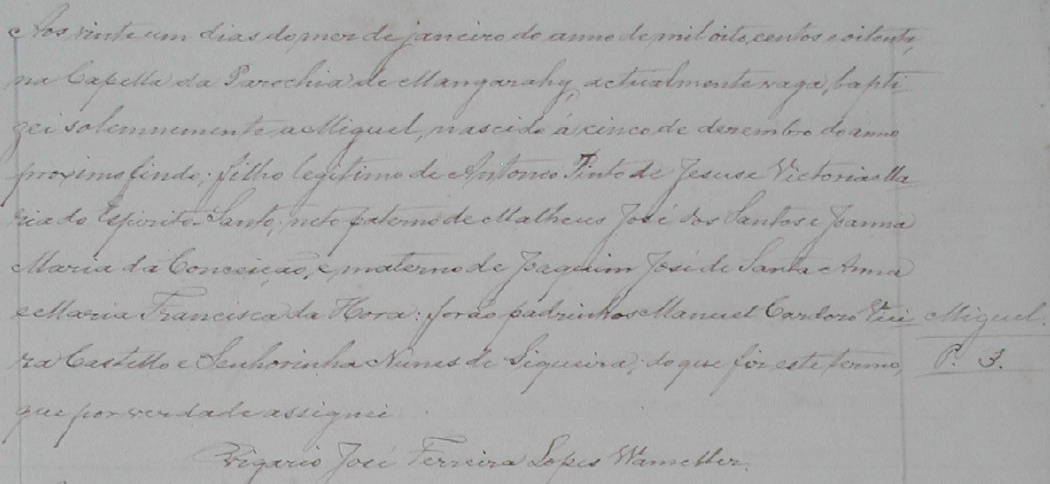 Aos vinte um dias do mez de janeiro do anno de mil oito centos e oitenta,
na Capella da Parochia de Mangarahy, actualmente vaga, bapti-
zei solemnemente a Miguel, nascido á cinco de dezembro do anno
proximo findo; filho legitimo de Antonio Pinto de Jesus e Victoria Ma-
ria do Espirito Santo, neto paterno de Matheus José dos Santos e Joanna
Maria da Conceição, e materno de Joaquim José de Santa Anna
e Maria Francisca da Hora: forão padrinhos Manuel Cardozo Viei-
ra Castello e Senhorinha Nunes de Siqueira; do que fiz este termo,
que por verdade assignei.
Vigario José Ferreira Lopes
Miguel.
P. 3.